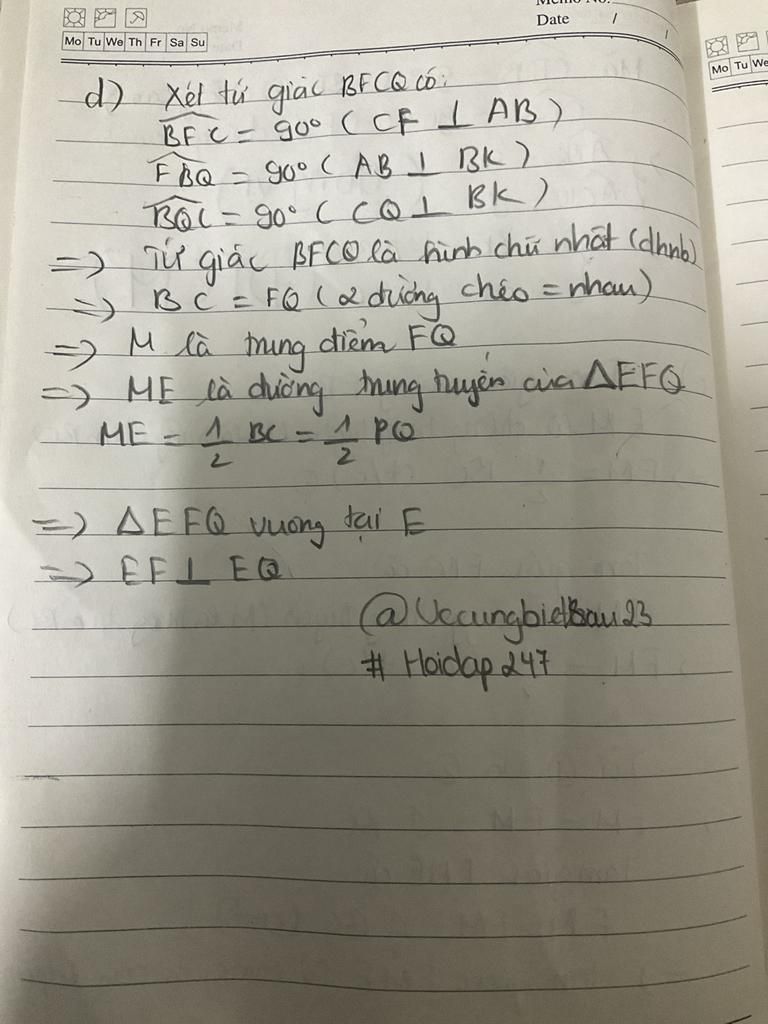 Memo No.
Date / /
Mo Tu We Th Fr Sa Su
Mo Tu We
d) Xét tứ giác BFCQ có:
BFC = 90° ( CF ⊥ AB )
FBQ = 90° ( AB ⊥ BK )
BQC = 90° ( CQ ⊥ BK )
=> Tứ giác BFCQ là hình chữ nhất (dhnb)
=> BC = FQ ( 2 đường chéo = nhau )
=> M là trung điểm FQ
=> ME là đường trung tuyến của ΔEFQ
ME = 1/2 BC = 1/2 PQ
=> ΔEFQ vuong tại E
=> EF ⊥ EQ
# Hoidap247